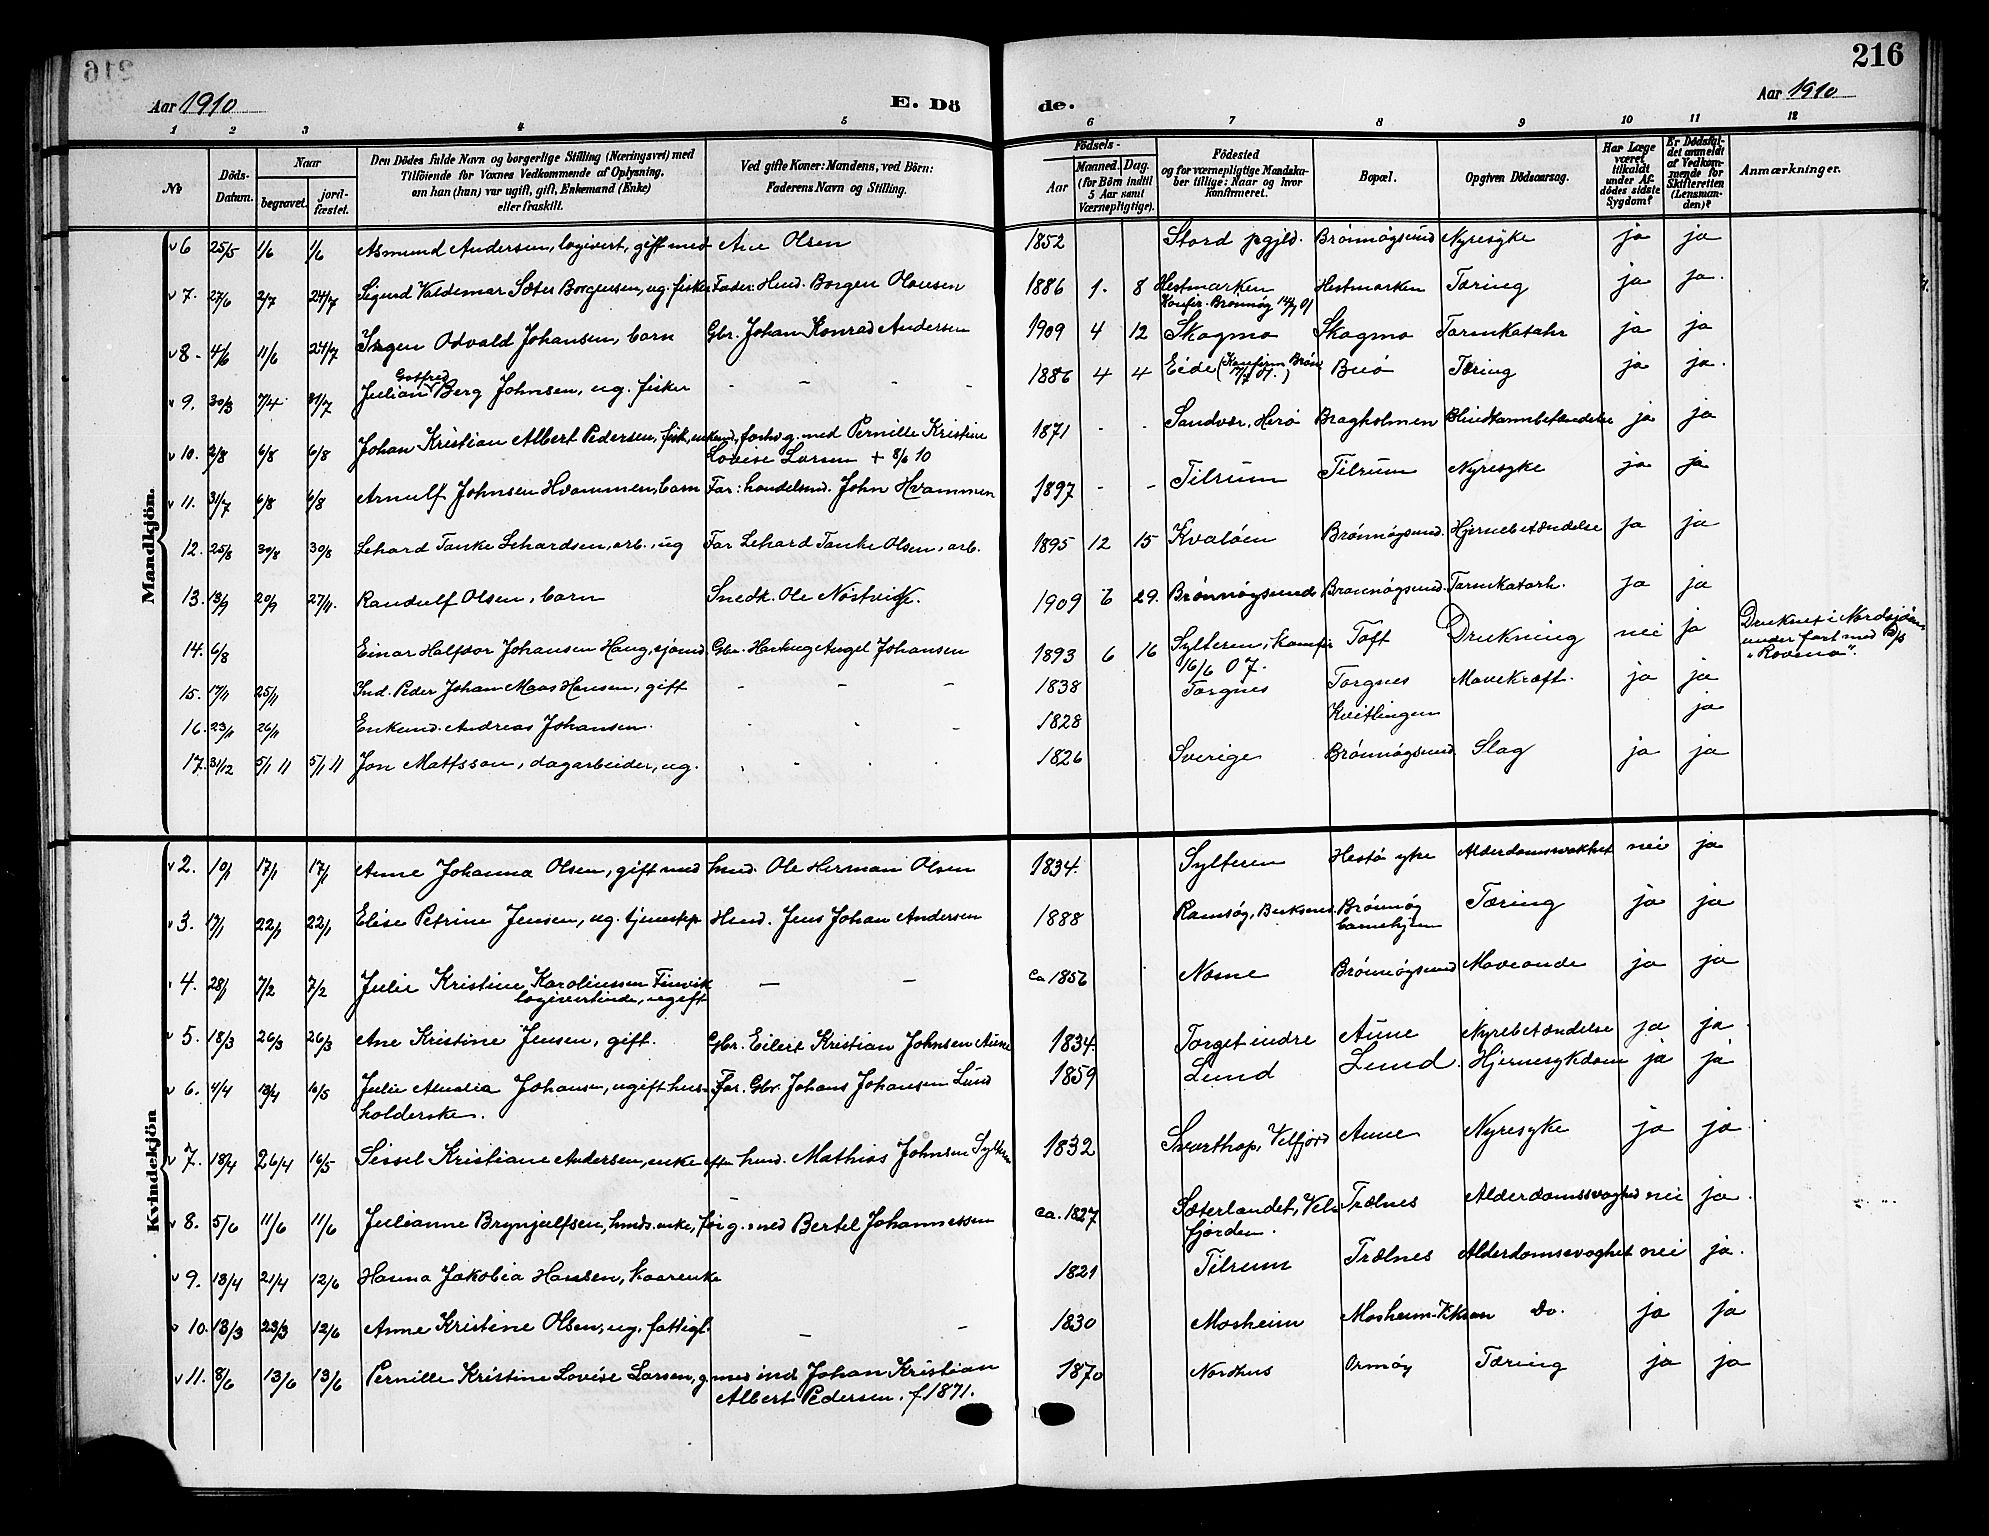 216
Aar 1910 E. Dö de. Aar 1910
1 2 3 4 5 6 7 8 9 10 11 12
No
Döds-Datum.
Naar
begravet.
jord-fæstet.
Den Dödes fulde Navn og borgerlige Stilling (Næringsvei) med
Tilföiende for Voxnes Vedkommende af Oplysning,
om han (hun) var ugift, gift, Enkemand (Enke)
eller fraskilt.
Ved gifte Koner: Mandens, ved Börn:
Faderens Navn og Stilling.
Födsels-
Aar
Maaned. Dag.
(for Börn indtil
5 Aar samt
Værnepligtige).
Födested
og for værnepligtige Mandska-
ber tillige: Naar og hvor
konfirmeret.
Bopæl.
Opgiven Dödsaarsag.
Har Læge
været
tilkaldt
under Af-
dödes sidste
Sygdom?
Er Dödsfal-
det anmeldt
af Vedkom-
mende for
Skifteretten
(Lensman-
den)?
Anmærkninger.
Mandkjön.
6 25/5 1/6 1/6 Asmund Andersen, logivert, gift med Ane Olsen 1852 Stord pgjld. Brönnögsund Nyresyke ja ja
7. 27/6 2/7 24/7 Sigurd Valdemar Sæter Borgensen, ug. fisker Fader: Hmd. Borgen Olausen 1886 1. 8 Hestmarken Hestmarken Tæring ja ja.
Konfir. Brönnög 14/7 01
8 4/6 11/6 24/7 Odvald Johansen, barn Gbr. Johan Konrad Andersen 1909 4 12 Skogmo Skogmo Tarmkatahr ja ja
Gotfred
9. 30/3 7/4 31/7 Julian Berg Johnsen, ug. fisker - - - - 1886 4 4 Eide (Konfirm. Brön. 01.) Buö Tæring ja ja.
10. 2/8 6/8 6/8 Johan Kristian Albert Pedersen, fisk, enkemd., forhv g. med Pernille Kristine 1871 - - Sandvær, Herö Bragholmen Blindtarmbetændelse ja ja
Lovise Larsen + 8/6 10
11. 31/7 6/8 6/8 Arnulf Johnsen Hvammen, barn Far: handelsmd. John Hvammen 1897 - - Tilrum Tilrum Nyresyke ja ja
12. 25/8 30/8 30/8 Lehard Tanke Lehardsen, arb., ug Far Lehard Tanke Olsen, arb. 1895 12 15 Kvalöen Brönnögsund. Hjernebetændelse ja ja
13. 13/9 20/9 27/11. Randulf Olsen, barn Snedk. Ole Nöstvik. 1909 6 29. Brönnögsund Brönnögsund. Tarmkatarh. ja ja
14. 6/8 Einar Halfdor Johansen Haug, sjömd. Gbr. Hartvig Angel Johansen 1893 6 16 Sylteren, Konfir Toft Drukning nei ja Druknet i Nordsjöen
16/6 07. under fart med D/S
"Rovena".
15. 17/11 25/11 Ind. Peder Johan Maas Hansen, gift - - - 1838 Torgnes Torgnes Mavekræft. ja ja
16. 23/11 26/11 Enkemd. Andreas Johansen. 1828 Kvitlingen ja
17. 31/12 5/1 11 5/1 11 Jon Mattsson, dagarbeider, ug. 1826 Sverige Brönnögsund. Slag ja ja
Kvindekjön
2. 10/1 17/1 17/1 Anne Johanna Olsen, gift med hmd. Ole Herman Olsen 1834. Sylteren Hestö ytre Alderdomssvakhet nei ja
3. 17/1 22/1 22/1 Elise Petrine Jensen, ug. tjenestep. Hmd. Jens Johan Andersen 1888 Ramsög, Bindalen Brönnög Tæring ja ja
barnehjem
4. 28/1 7/2 7/2 Julie Kristine Karolinssen Finvik — — ca 1856 Nesne Brönnögsund Maveonde ja ja
logivertinde, ugift
5. 18/3 26/3 26/3 Ane Kristine Jensen, gift. Gbr. Eilert Kristian Johnsen Aune 1834. Torget indre Aune Nyrebetændelse ja ja
6. 4/4 13/4 16/5 Julie Amalia Johansn, ugift hus- Far. Gbr. Johans Johansen Lund 1859 Lund Lund. Hjernesykdom ja ja
holderske.
7. 18/4 26/4 16/5 Sissel Kristiane Andersen, enke efter hmd. Mathias Johnsen Sylteren 1832 Svarthop, Velfjord Aune Nyresyke ja ja
8. 5/6 11/6 11/6 Julianne Brynjulfsen, hmds. enke, för g. med Bertel Johannessen ca. 1827 Sæterlandet, Vel- Trælnes Alderdomssvaghed nei ja
fjorden.
9. 13/4 21/4 12/6 Hanna Jakobia Hansen, kaarenke 1821 Tilrum Trælnes Alderdomssvaghet nei ja.
10. 13/3 23/3 12/6 Anne Kristine Olsen, ug. fattigl. — - 1830 Mosheim Mosheim-Viksaen Do. ja ja
11. 8/6 13/6 13/6 Pernille Kristine Lovise Larsen, g. med ind Johan Kristian 1870 Nordhus Ormöy Tæring ja ja
Albert Pedersen. f. 1871.